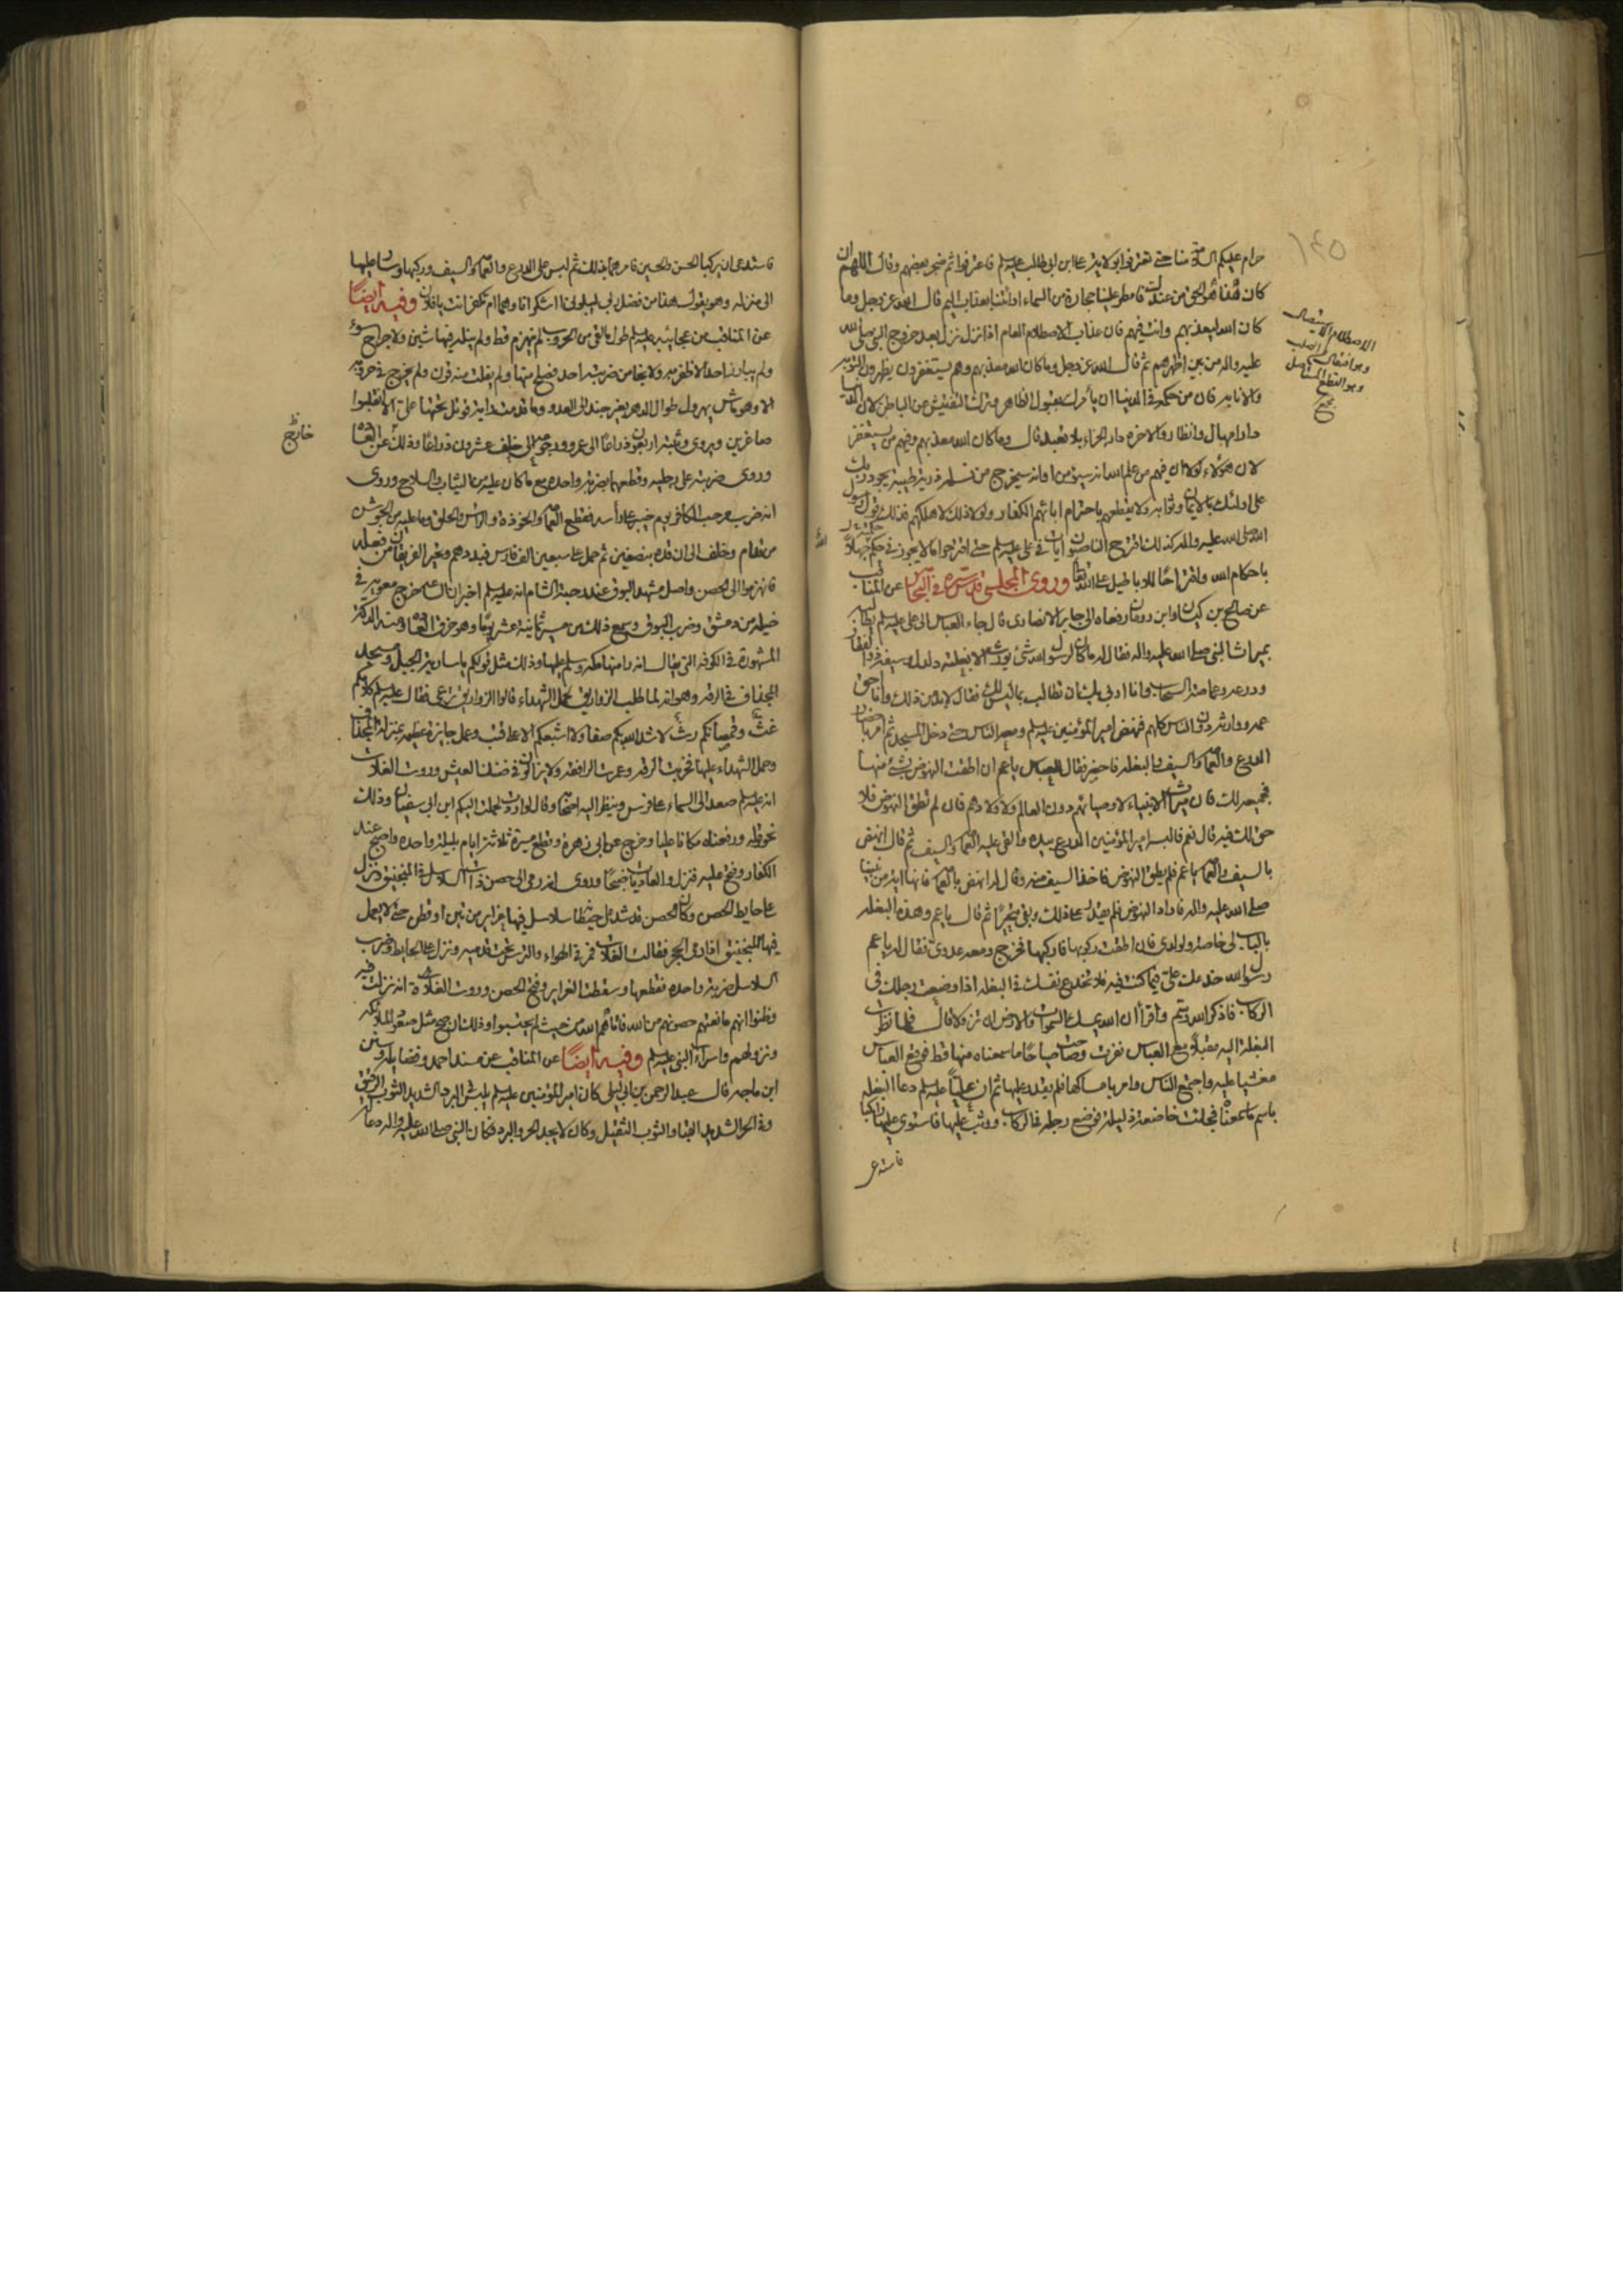 حرام عليكم السلامة منا حتى تعترفوا بولاية علي ابن ابي طالب عليه السلم فاعترفوا ثم ضجر بعضهم وقال اللهم ان
كان هذا هو الحق من عندك فامطر علينا حجارة من السماء او ائتنا بعذاب اليم قال الله عز وجل وما
كان الله ليعذبهم وانت فيهم فان عذاب الاصطلام العام اذا نزل نزل بعد خروج النبي صلى الله
عليه واله من بين اظهرهم ثم قال الله عز وجل وما كان الله معذبهم وهم يستغفرون يظهرون التوبة
والانابة فان من حكمه في الدنيا ان يأمرك بقبول الظاهر وترك التفتيش عن الباطن لان الدنيا
دار امهال وانظار والاخرة دار الجزاء بلا تعبد قال وما كان الله معذبهم وفيهم من يستغفر
لان هؤلاء لو لا ان فيهم من علم الله انه سيؤمن او انه سيخرج من نسله ذرية طيبة يجود ربك
على اولئك بالايمان وثوابه ولا يقطعهم باخترام ابائهم الكفار ولولا ذلك لاهلكهم فذلك قول رسول
الله صلى الله عليه واله كذلك اقترح الناصبون ايات في علي عليه السلم حتى اقترحوا ما لا يجوز في حكمه جهلا
باحكام الله واقتراحا للاباطيل على الله تعالى وروى المجلسي قدس سره في البحار عن المناقب
عن صالح بن كيسان وابن رومان رفعاه الى جابر الانصاري قال جاء العباس الى علي عليه السلم يطالبه
بميراث النبي صلى الله عليه واله فقال له ما كان لرسول الله شئ يورث الا بغلته دلدل وسيفه ذو الفقار
ودرعه وعمامته السحاب وانا اربي بك ان تطالب بما ليس لك فقال لا بد من ذلك وانا احق
عمه ووارثه دون الناس كلهم فنهض امير المؤمنين عليه السلم ومعه الناس حتى دخل المسجد ثم امر باحضار
الدرع والعمامة والسيف والبغلة فاحضر فقال للعباس يا عم ان اطقت النهوض بشئ منها
فجميعه لك فان ميراث الانبياء لاوصيائهم دون العالم ولاولادهم فان لم تطق النهوض فلا
حق لك فيه قال نعم فالبسه امير المؤمنين الدرع بيده والقى عليه العمامة والسيف ثم قال انهض
بالسيف والعمامة يا عم فلم يطق النهوض فاخذ السيف منه وقال له انهض بالعمامة فانها اية من نبينا
صلى الله عليه واله فاراد النهوض فلم يقدر على ذلك وبقي متحيرا ثم قال يا عم وهذه البغلة
بالباب لي خاصة ولولدي فان اطقت ركوبها فاركبها فخرج ومعه عدوي فقال له يا عم
رسول الله خدعك علي فيما كنت فيه فلا تخدع نفسك في البغلة اذا وضعت رجلك في
الركاب فاذكر الله وسم واقرأ ان الله يمسك السموات والارض ان تزولا قال فلما نظرت
البغلة اليه مقبلا مع العباس نفرت وصاحت صياحا ما سمعناه منها قط فوقع العباس
مغشيا عليه واجتمع الناس وامر بامساكها فلم يقدر عليها ثم ان عليا عليه السلم دعا البغلة
باسم ما سمعناه فجاءت خاضعة ذليلة فوضع رجله في الركاب ووثب عليها فاستوى عليها راكبا
فاستدعى
الاصطلام الاستيصال
وهو افتعال من الصلم
وهو القطع المستاصل
مجمع
١٤٥
فاستدعى ان يركبا الحسن والحسين فامرهما بذلك ثم لبس علي الدرع والعمامة والسيف وركبها وسار عليها
الى منزله وهو يقول هذا من فضل ربي ليبلوني ءاشكر انا وهما ام تكفر انت يا فلان وفيه ايضا
عن المناقب من عجائبه عليه السلم طول ما لقي من الحروب لم ينهزم قط ولم ينله فيها شين ولا جراح سوء
ولم يبارز احدا الا ظفر به ولا نجا من ضربته احد فصلح منها ولم يفلت منه قرن ولم يخرج في حروبه
الا وهو ماش يهرول طوال الدهر بغير جند الى العدو وما قدمت راية قوتل تحتها علي الا انقلبوا
صاغرين ويروى وثبته اربعون ذراعا الى عمرو ورجوعه الى خلف عشرون ذراعا وذلك خارج عن العادة
وروى ضربته على رجليه وقطعهما بضربة واحدة مع ما كان عليه من الثياب والسلاح وروى
انه ضرب مرحب الكافر يوم خيبر على رأسه فقطع العمامة والخوذة والراس والحلق وما عليه من الجوشن
من قدام وخلف الى ان قده بنصفين ثم حمل على سبعين الف فارس فبددهم وتحير الفريقان من فعله
فانهزموا الى الحصن واصل مشهد البوق عند رحبة الشام انه عليه السلم اخبر ان الساعة خرج معوية في
خيله من دمشق وضرب البوق وسمع ذلك من مسيرة ثمانية عشر يوما وهو خرق العادة ومنه الدكة
المشهورة في الكوفة التي يقال انه راى منها مكة وسلم عليها وذلك مثل قولكم يا سارية الجبل ومسجد
المجذاف في الرقة وهو انه لما طلب الزواريق لحمل الشهداء قالوا الزواريق ترعى فقال عليه السلم كلامكم
غث وقمصانكم رث لا شد الله بكم صفا ولا اشبعكم الا على قتب وعمل جايزة عظيمة بمنزلة المجذاف
وحمل الشهداء عليها فخربت الرقة وعمرت الرافقة ولا يزالون في ضنك العيش وروت الغلاة
انه عليه السلم صعد الى السماء على فرس وينظر اليه اصحابه وقال لو اردت لحملت اليكم ابن ابي سفيان وذلك
نحو قوله ورفعناه مكانا عليا وخرج عن ابي زهرة وقطع مسيرة ثلاثة ايام بليلة واحدة واصبح عند
الكفار وفتح عليه فنزل والعاديات ضبحا وروى انه رمي الى حصن ذات السلاسل في المنجنيق ونزل
على حايط الحصن وكان الحصن قد شد على حيطانه سلاسل فيها غراير من تبن او قطن حتى لا يعمل
فيها المنجنيق اذا رمي الحجر فقالت الغلاة فمر في الهواء والترس تحت قدميه ونزل على الحايط وضرب
السلاسل ضربة واحدة فقطعها وسقطت الغراير وفتح الحصن وروت الغلاة انه نزلت فيه
وظنوا انهم مانعتهم حصونهم من الله فاتاهم الله من حيث لم يحتسبوا وذلك ان صح مثل صعود الملائكة
ونزولهم واسراء النبي عليه السلم وفيه ايضا عن المناقب عن مسند احمد وفضايله وسنن
ابن ماجه قال عبد الرحمن بن ابي ليلى كان امير المؤمنين عليه السلم يلبس في البرد الشديد الثوب الرقيق
وفي الحر الشديد القباء والثوب الثقيل وكان لا يجد الحر والبرد فكان النبي صلى الله عليه واله دعا له
خارج